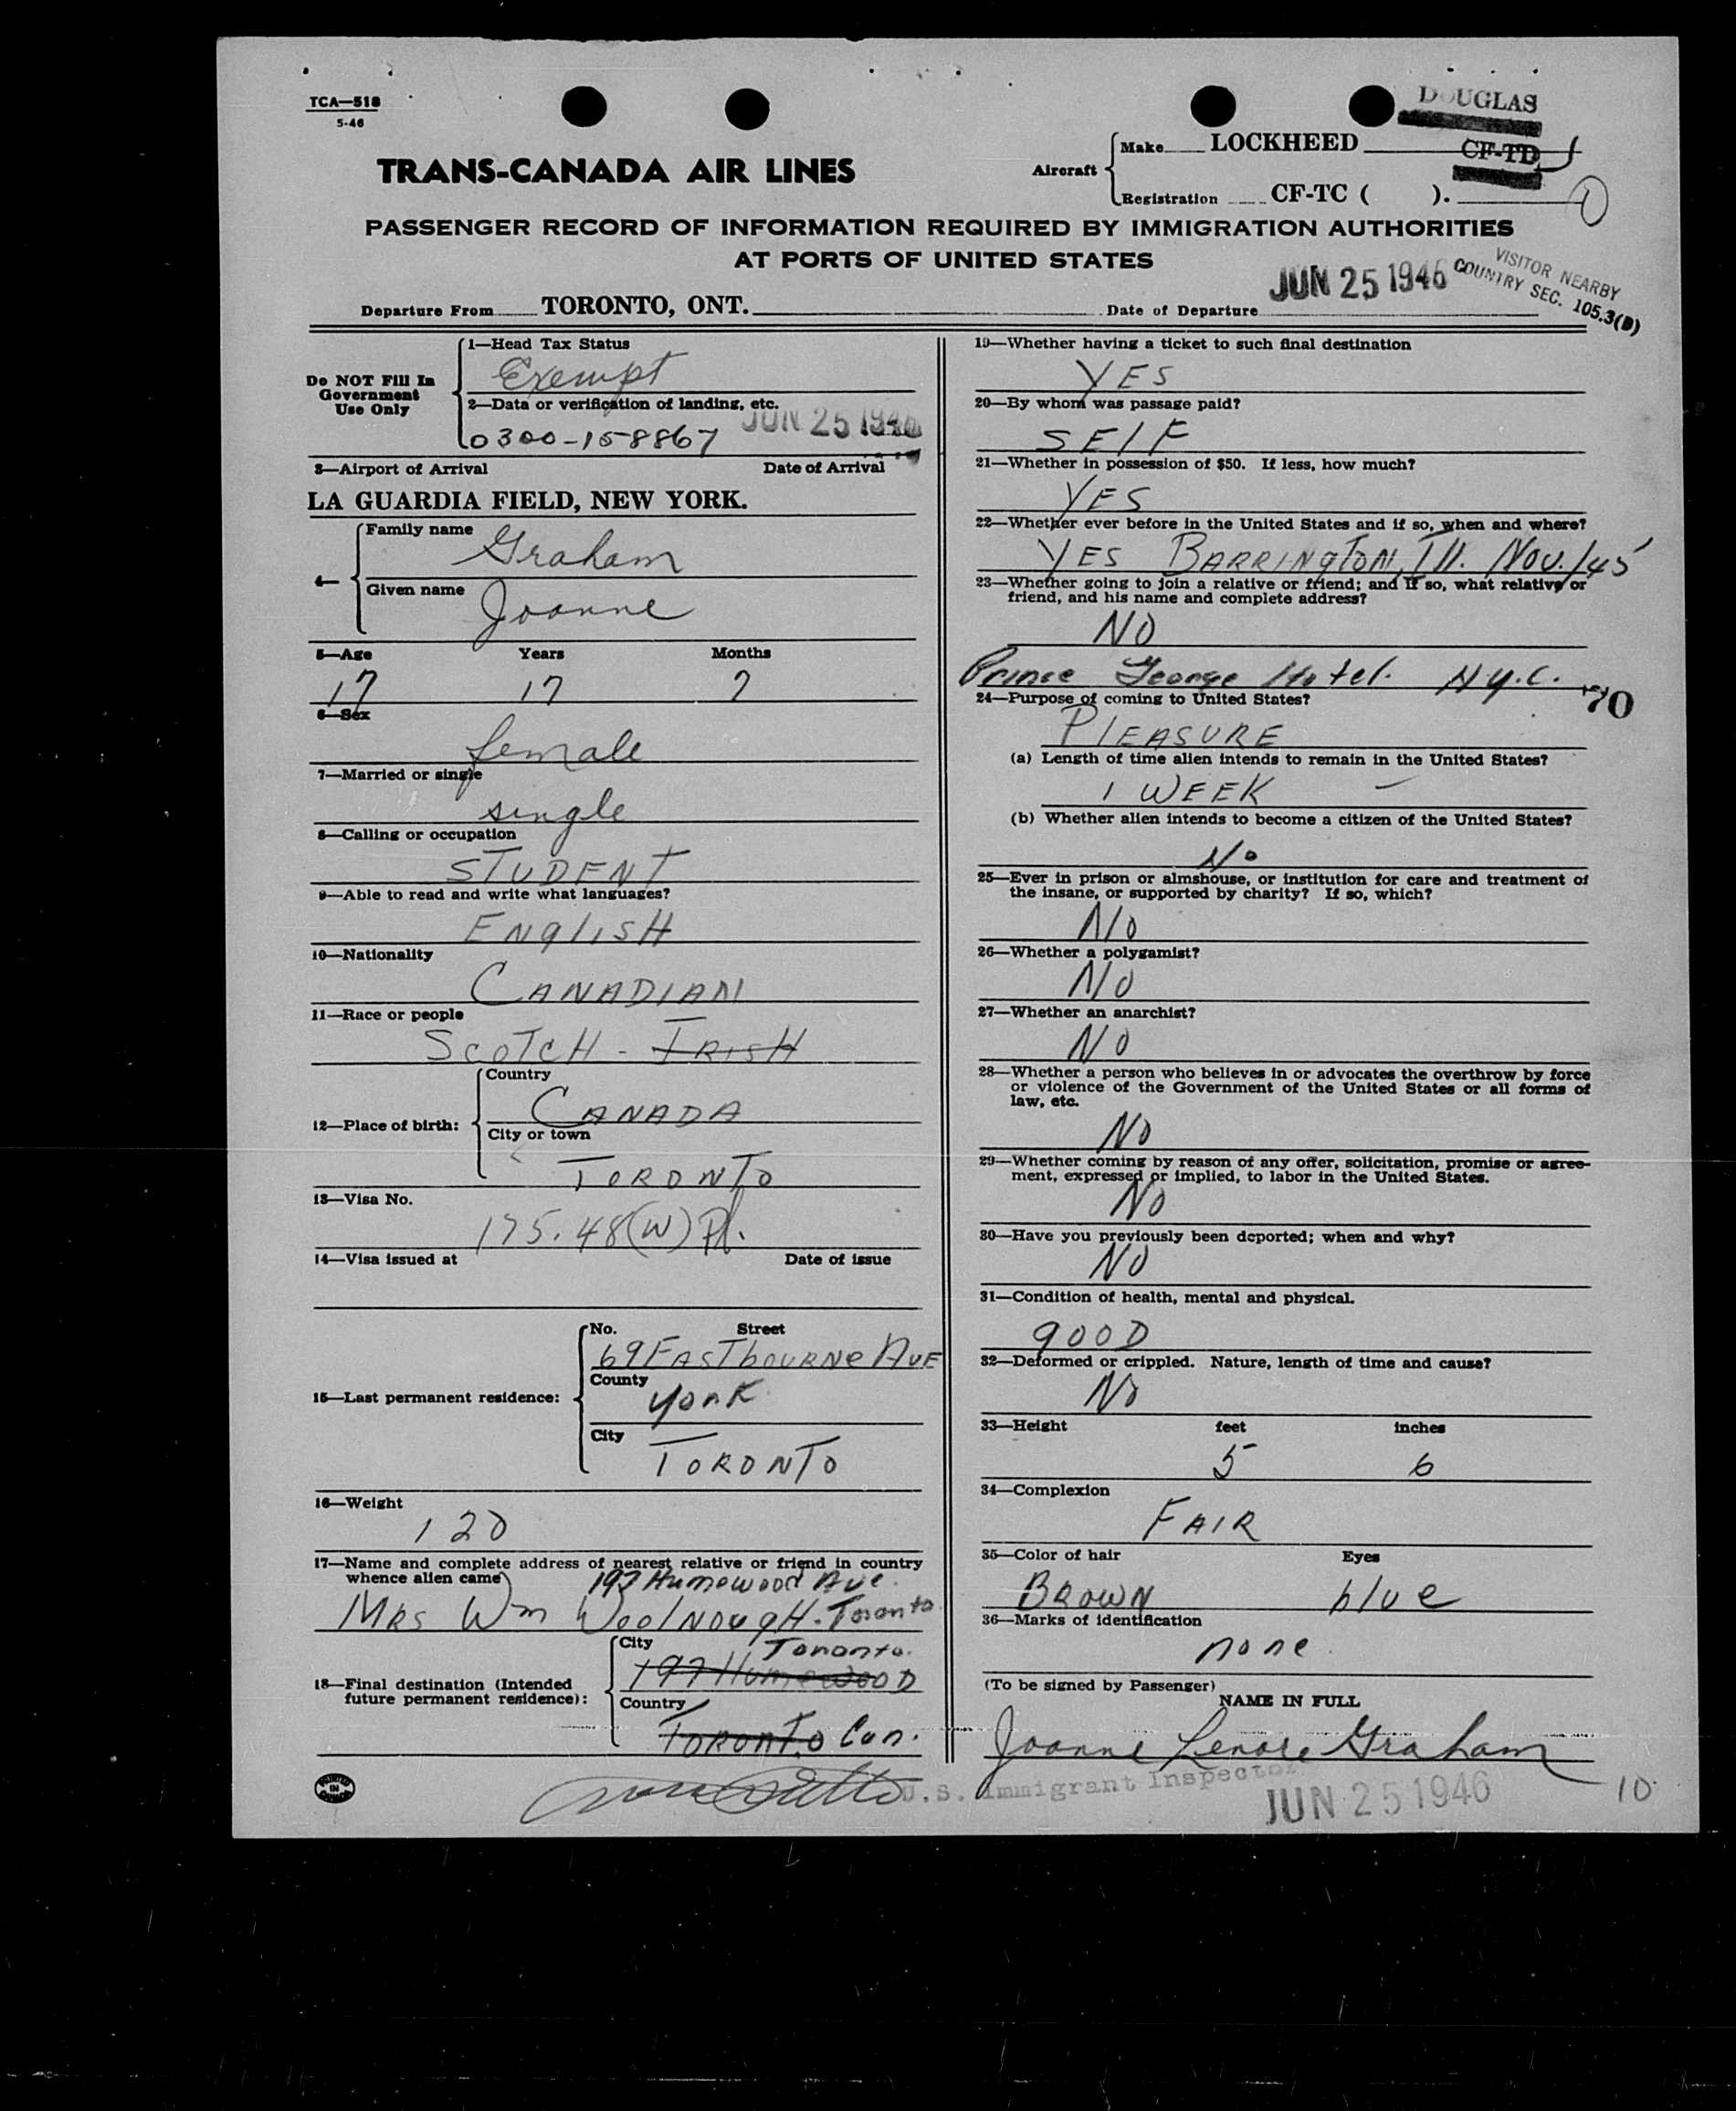 TCA—518
5-46
DOUGLAS
TRANS-CANADA AIR LINES
Aircraft
Make LOCKHEED
CF-TD
Registration CF-TC ( ).
PASSENGER RECORD OF INFORMATION REQUIRED BY IMMIGRATION AUTHORITIES
AT PORTS OF UNITED STATES
VISITOR NEARBY
COUNTRY SEC. 105.3(D)
Departure From TORONTO, ONT.
Date of Departure JUN 25 1946
Do NOT Fill In
Government
Use Only
1—Head Tax Status
Exempt
2—Data or verification of landing, etc.
0300-158867 JUN 25 1946
3—Airport of Arrival Date of Arrival
LA GUARDIA FIELD, NEW YORK.
4—
Family name
Graham
Given name
Joanne
5—Age Years Months
17 17 7
6—Sex
female
7—Married or single
single
8—Calling or occupation
STUDENT
9—Able to read and write what languages?
ENglisH
10—Nationality
CANADIAN
11—Race or people
SCOTCH - IRISH
12—Place of birth:
Country
CANADA
City or town
TORONTO
13—Visa No.
175.48(W)Pl.
14—Visa issued at Date of issue
15—Last permanent residence:
No. Street
69 EASTbOURNe AVE
County
York
City
TORONTO
16—Weight
120
17—Name and complete address of nearest relative or friend in country
whence alien came
197 Humewood Ave.
MRS Wm WoolNougH - Toronto
18—Final destination (Intended
future permanent residence):
City Toronto.
197 HumewooD
Country
TORONTO Can.
PRINTED IN
19—Whether having a ticket to such final destination
YES
20—By whom was passage paid?
SElF
21—Whether in possession of $50. If less, how much?
YES
22—Whether ever before in the United States and if so, when and where?
YES BARRINgTON, Ill. Nov./45
23—Whether going to join a relative or friend; and if so, what relative or
friend, and his name and complete address?
NO
Prince George Hotel. N.Y.C.
70
24—Purpose of coming to United States?
PlEASURE
(a) Length of time alien intends to remain in the United States?
1 WEEK
(b) Whether alien intends to become a citizen of the United States?
No
25—Ever in prison or almshouse, or institution for care and treatment of
the insane, or supported by charity? If so, which?
No
26—Whether a polygamist?
NO
27—Whether an anarchist?
NO
28—Whether a person who believes in or advocates the overthrow by force
or violence of the Government of the United States or all forms of
law, etc.
No
29—Whether coming by reason of any offer, solicitation, promise or agree-
ment, expressed or implied, to labor in the United States.
No
30—Have you previously been deported; when and why?
NO
31—Condition of health, mental and physical.
gOOD
32—Deformed or crippled. Nature, length of time and cause?
No
33—Height feet inches
5 6
34—Complexion
FAIR
35—Color of hair Eyes
BROWN blue
36—Marks of identification
none
(To be signed by Passenger)
NAME IN FULL
Joanne Lenore Graham
U.S. Immigrant Inspector
JUN 25 1946
10